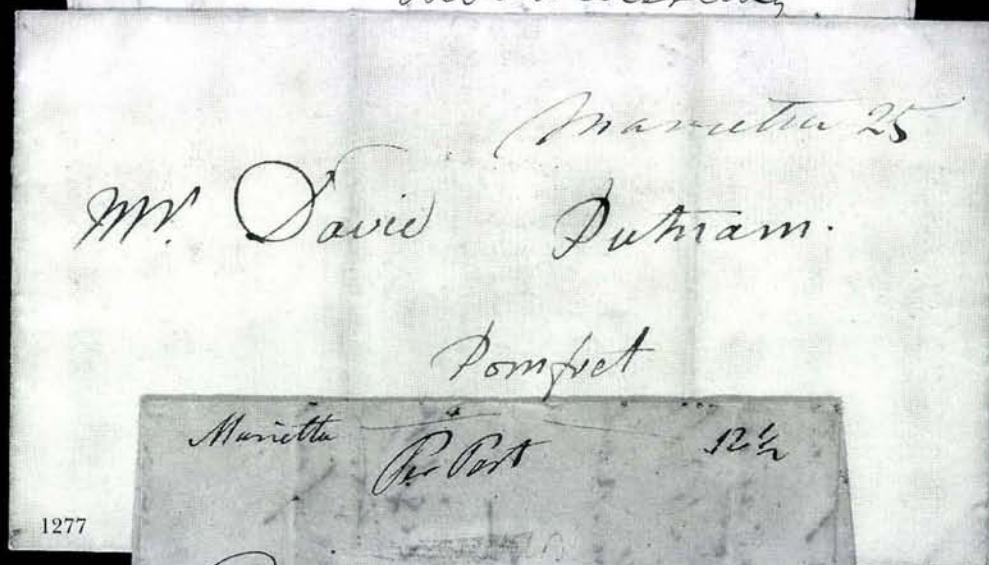 Marietta 25
Mr. David Putnam.
Pomfret
Marietta
Per Post
12½
1277